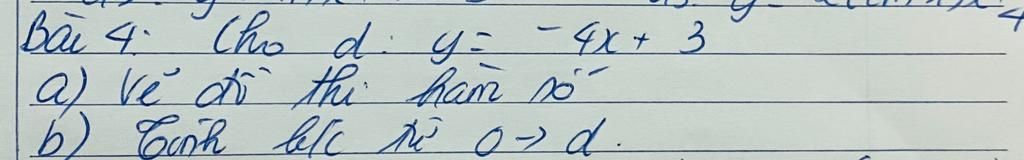 Bài 4: Cho d: y = -4x + 3
a) Vẽ đồ thị hàm số
b) Tính k/c từ O → d.